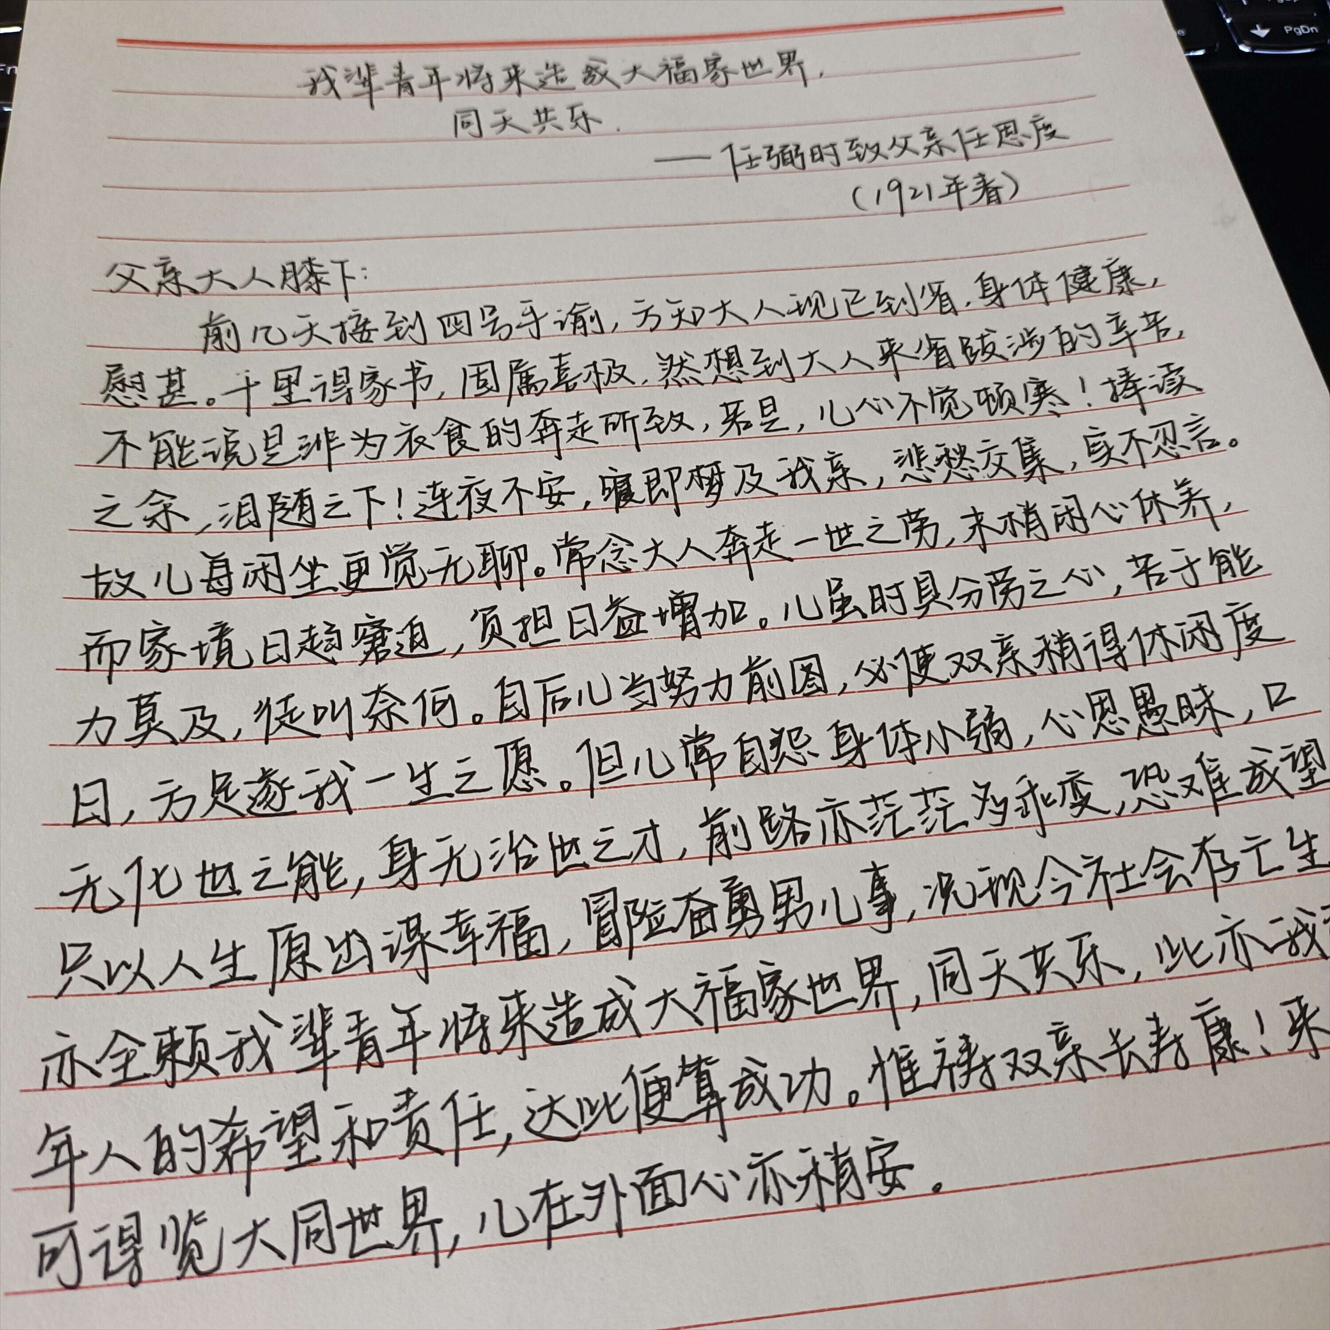 我辈青年将来造成大福家世界,
同天共乐.
——任弼时致父亲任思度
(1921年春)
父亲大人膝下:
前几天接到四号手谕,方知大人现已到省,身体健康,
慰甚。千里得家书,固属喜极,然想到大人来省跋涉的辛苦,
不能说是非为衣食的奔走所致,若是,儿心不觉顿寒!捧读
之余,泪随之下!连夜不安,寝即梦及我亲,悲愁交集,实不忍言。
故儿每闲坐更觉无聊。常念大人奔走一世之劳,未稍闲心休养,
而家境日趋窘迫,负担日益增加。儿虽时具分劳之心,苦于能
力莫及,徒叫奈何。自后儿当努力前图,必使双亲稍得休闲度
日,方足遂我一生之愿。但儿常自怨身体小弱,心思愚昧,口
无化世之能,身无治世之才,前路亦茫茫多乖变,恐难成望
只以人生原出谋幸福,冒险奋勇男儿事,况现今社会存亡生
亦全赖我辈青年将来造成大福家世界,同天共乐,此亦我
年人的希望和责任,达此便算成功。惟祷双亲长寿康!来
可得览大同世界,儿在外面心亦稍安。